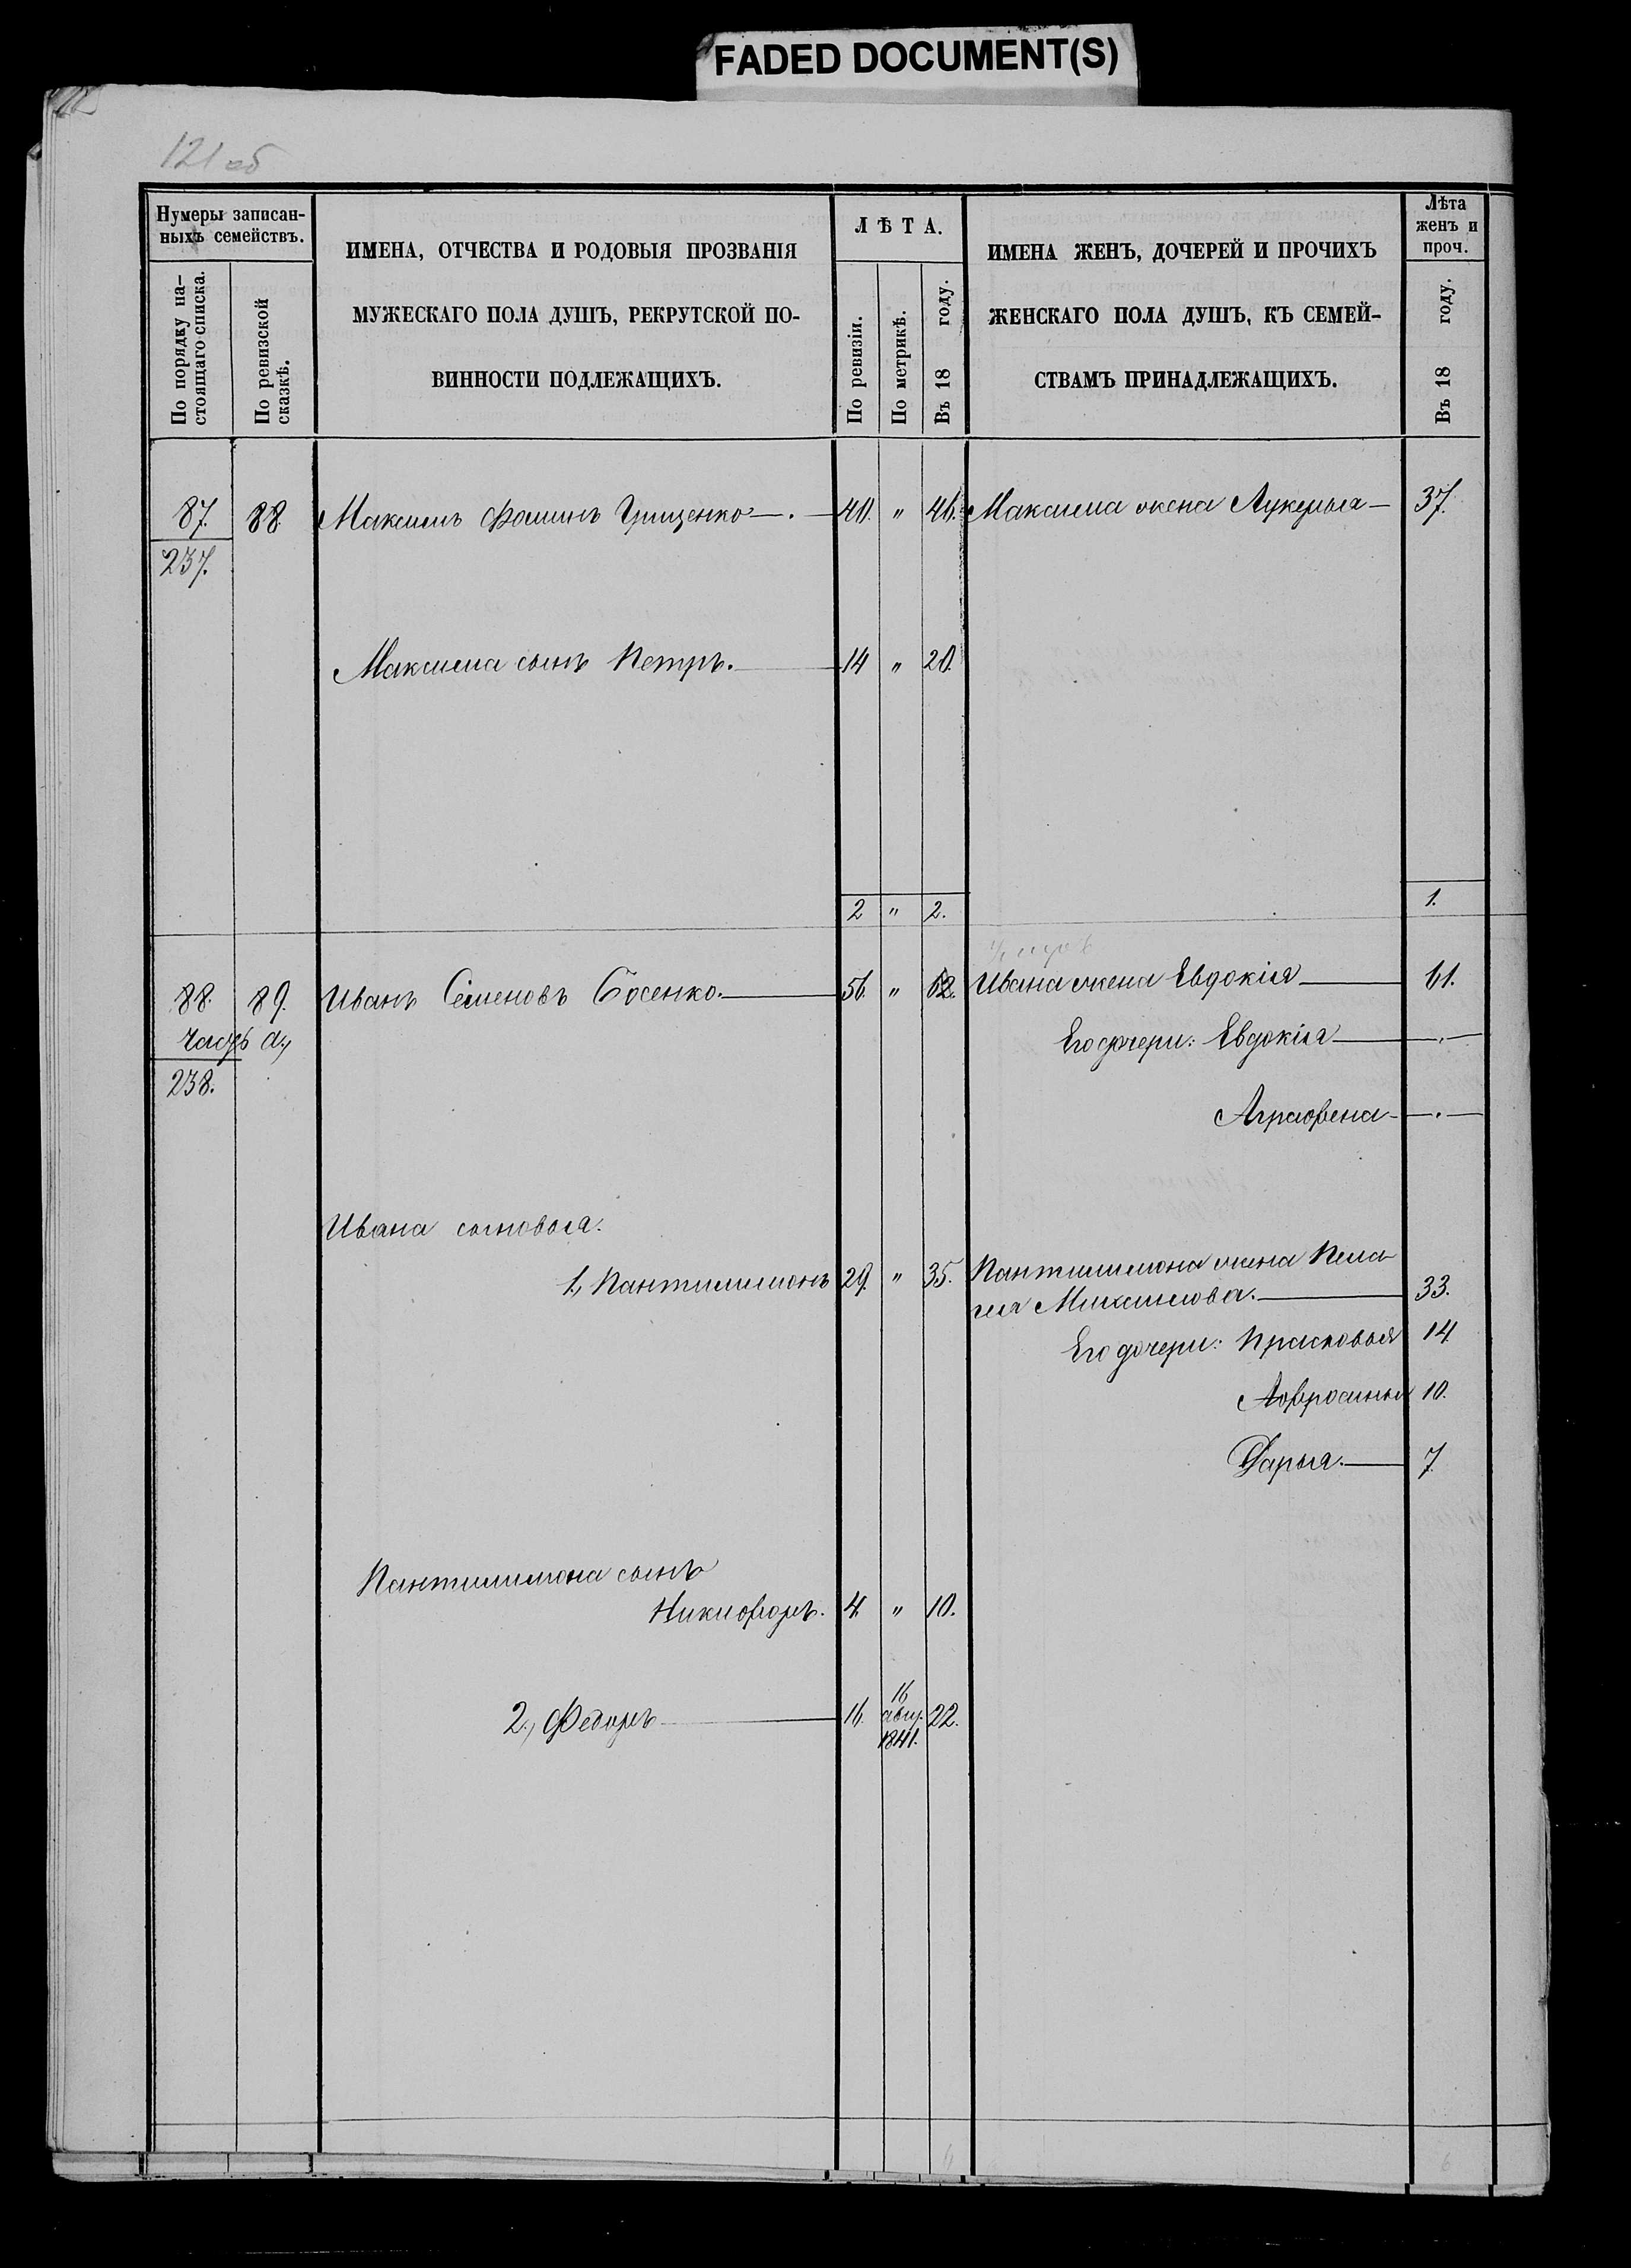 FADED DOCUMENT(S)
121 об
Нумеры записан-
ныхъ семействъ.
По порядку на-
стоящаго списка.
По ревизской
сказкѣ.
ИМЕНА, ОТЧЕСТВА И РОДОВЫЯ ПРОЗВАНІЯ
МУЖЕСКАГО ПОЛА ДУШЪ, РЕКРУТСКОЙ ПО-
ВИННОСТИ ПОДЛЕЖАЩИХЪ.
ЛѢТА.
По ревизіи.
По метрикѣ.
Въ 18 году.
ИМЕНА ЖЕНЪ, ДОЧЕРЕЙ И ПРОЧИХЪ
ЖЕНСКАГО ПОЛА ДУШЪ, КЪ СЕМЕЙ-
СТВАМЪ ПРИНАДЛЕЖАЩИХЪ.
Лѣта
женъ и
проч.
Въ 18 году.
87. 88. Максимъ Фоминъ Грищенко 40. " 46. Максима жена Лукерья 37.
237.
Максима сынъ Петръ. 14 " 20.
2 " 2. 1.
88. 89. Иванъ Семеновъ Босенко. 56. " 62. Ивана жена Евдокія 61.
часть а,
238.
Его дочери: Евдокія
Аграфена
Ивана сыновья:
1, Пантилимонъ 29. " 35. Пантилимона жена Пела-
гея Максимова. 33.
Его дочери: Прасковья 14
Афросинья 10.
Дарья. 7
Пантилимона сынъ
Никифоръ. 4. " 10.
2, Федоръ 16. 16 авгу. 1841. 22.
6
6